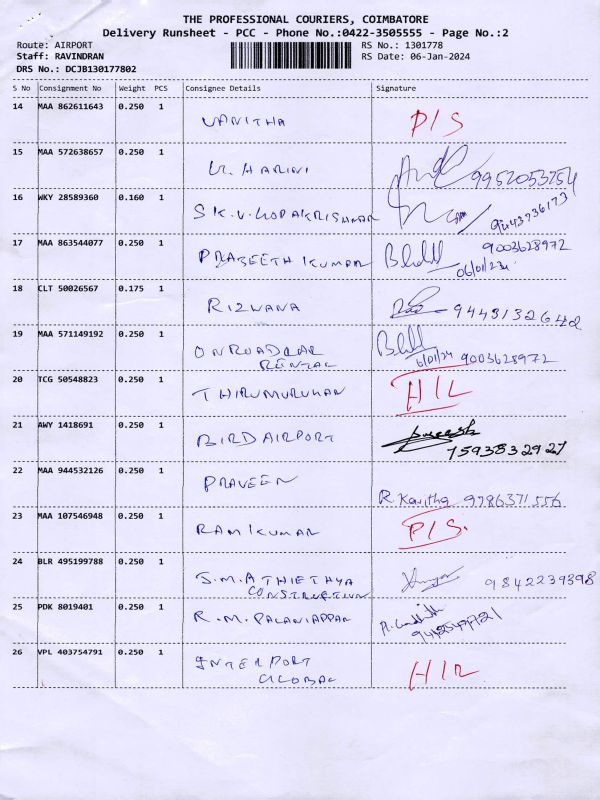 THE PROFESSIONAL COURIERS, COIMBATORE
Delivery Runsheet - PCC - Phone No.:0422-3505555 - Page No.:2
Route: AIRPORT RS No.: 1301778
Staff: RAVINDRAN RS Date: 06-Jan-2024
DRS No.: DCJB130177802
S No Consignment No Weight PCS Consignee Details Signature
14 MAA 862611643 0.250 1 VANITHA P/S
15 MAA 572638657 0.250 1 HARINI 9952053254
16 WKY 28589360 0.160 1 S K.V.GOPAKRISHNAN 9443736173
17 MAA 863544077 0.250 1 PRAJEETH KUMAR 9003628972
06/01/24
18 CLT 50026567 0.175 1 RIZWANA 9443132642
19 MAA 571149192 0.250 1 ONROADCAR
RENTAL 6/01/24 9003628972
20 TCG 50548823 0.250 1 THIRUMURUHAN H/L
21 AWY 1418691 0.250 1 BIRD AIRPORT
7593832927
22 MAA 944532126 0.250 1 PRAVEEN
R. Kavitha 9786371556
23 MAA 107546948 0.250 1 RAMKUMAR P/S.
24 BLR 495199788 0.250 1 S.M.ATHIETHYA
CONSTRUCTION 9842239398
25 PDK 8019401 0.250 1 R.M.PALANIAPPAN
26 VPL 403754791 0.250 1 INTERPORT
GLOBAL H/L